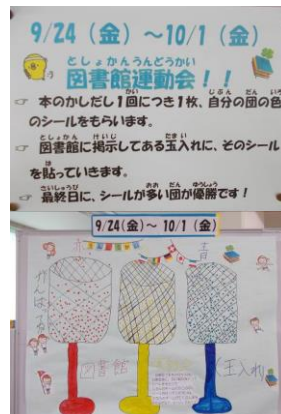 9/24（金）～10/1（金）
としょかんうんどうかい
図書館運動会！！
☞ 本のかしだし1回につき1枚、自分の団の色
のシールをもらいます。
☞ 図書館に掲示してある玉入れに、そのシール
を貼っていきます。
☞ 最終日に、シールが多い団が優勝です！
9/24(金)～ 10/1（金）
赤
青
がんばるぞ
図書館
玉入れ